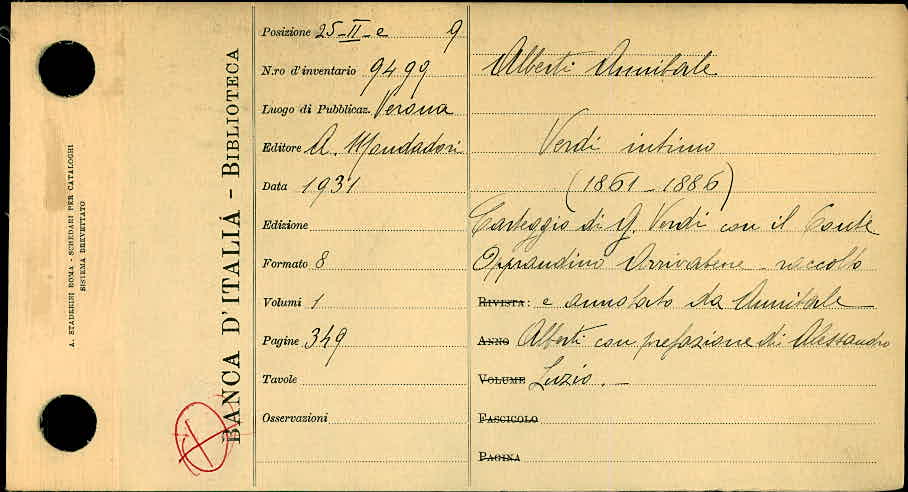 A. STADERINI ROMA - SCHEDARI PER CATALOGHI
SISTEMA BREVETTATO
BANCA D'ITALIÁ - BIBLIOTECA
Posizione 25-II-e 9
N.ro d'inventario 9499
Luogo di Pubblicaz. Verona
Editore A. Mondadori
Data 1931
Edizione
Formato 8
Volumi 1
Pagine 349
Tavole
Osservazioni
Alberti Annibale
Verdi intimo
(1861-1886)
Carteggio di G. Verdi con il Conte
Opprandino Arrivabene - raccolto
RIVISTA: e annotato da Annibale
ANNO Alberti con prefazione di Alessandro
VOLUME Luzio. -
FASCICOLO
PAGINA